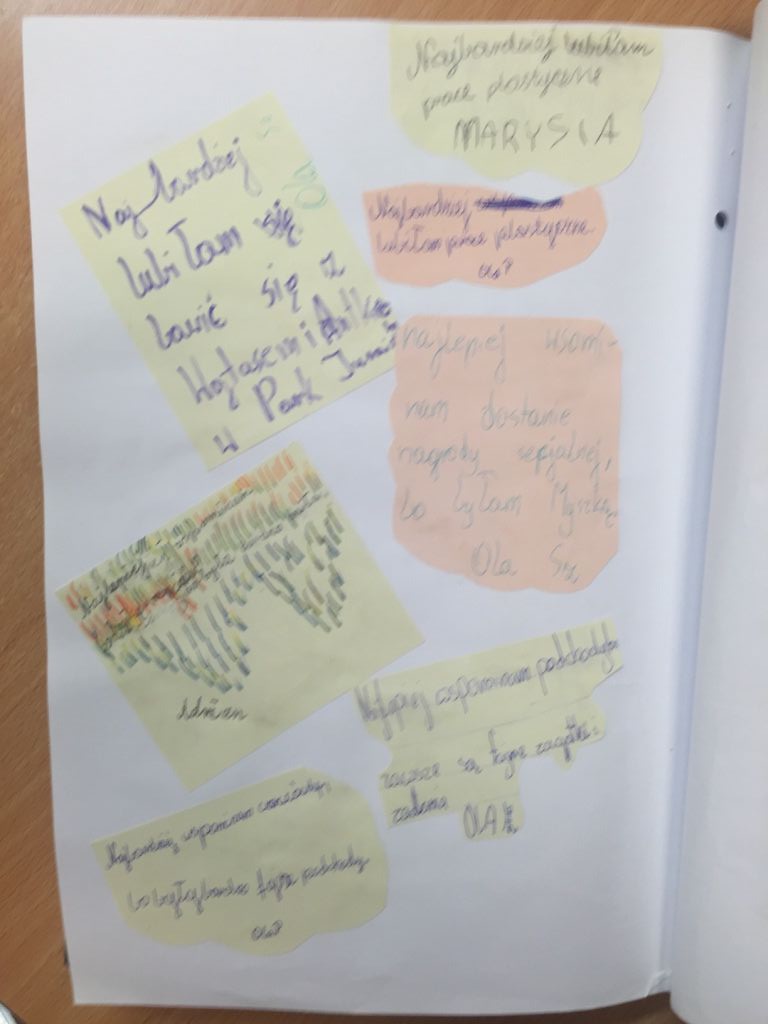 Najbardziej lubiłam
prace plastyczne
MARYSIA
Najbardziej
lubiłam się
bawić się z
Wojtasem i Antkiem
w Park
Ola
Najbardziej
lubiłam prace plastyczne
Ola P
najlepiej wsomi-
nam dostanie
nagrody sepjalnej,
bo byłam Myszką.
Ola Sz
Najlepiej
Adrian
Najlepiej wspominam podchody bo
zawsze są fajne zagadki i
zadania
OLA K
Najbardziej wspominam
bo były bardzo fajne podchody
Ola P